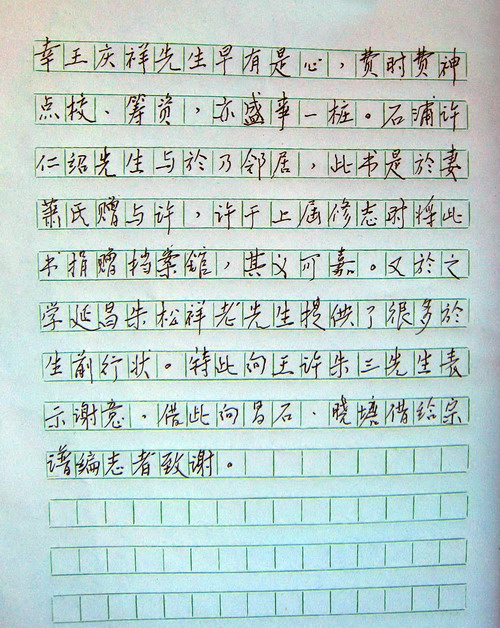 幸王庆祥先生早有是心，费时费神
点校、筹资，亦盛事一桩。石浦许
仁绍先生与於乃邻居，此书是於妻
萧氏赠与许，许于上届修志时将此
书捐赠档案馆，其义可嘉。又於之
学延昌朱松祥老先生提供了很多於
生前行状。特此向王许朱三先生表
示谢意、借此向昌石、晓塘借给宗
谱编志者致谢。